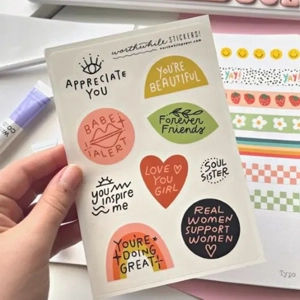 worthwhile STICKERS!
APPRECIATE
YOU
YOU'RE
BEAUTIFUL
BABE
ALERT
Forever
Friends
LOVE
YOU
GIRL
SOUL
SISTER
you
inspire
me
REAL
WOMEN
SUPPORT
WOMEN
YOU'RE
DOING
GREAT!
YAY!
YAY!
Typo